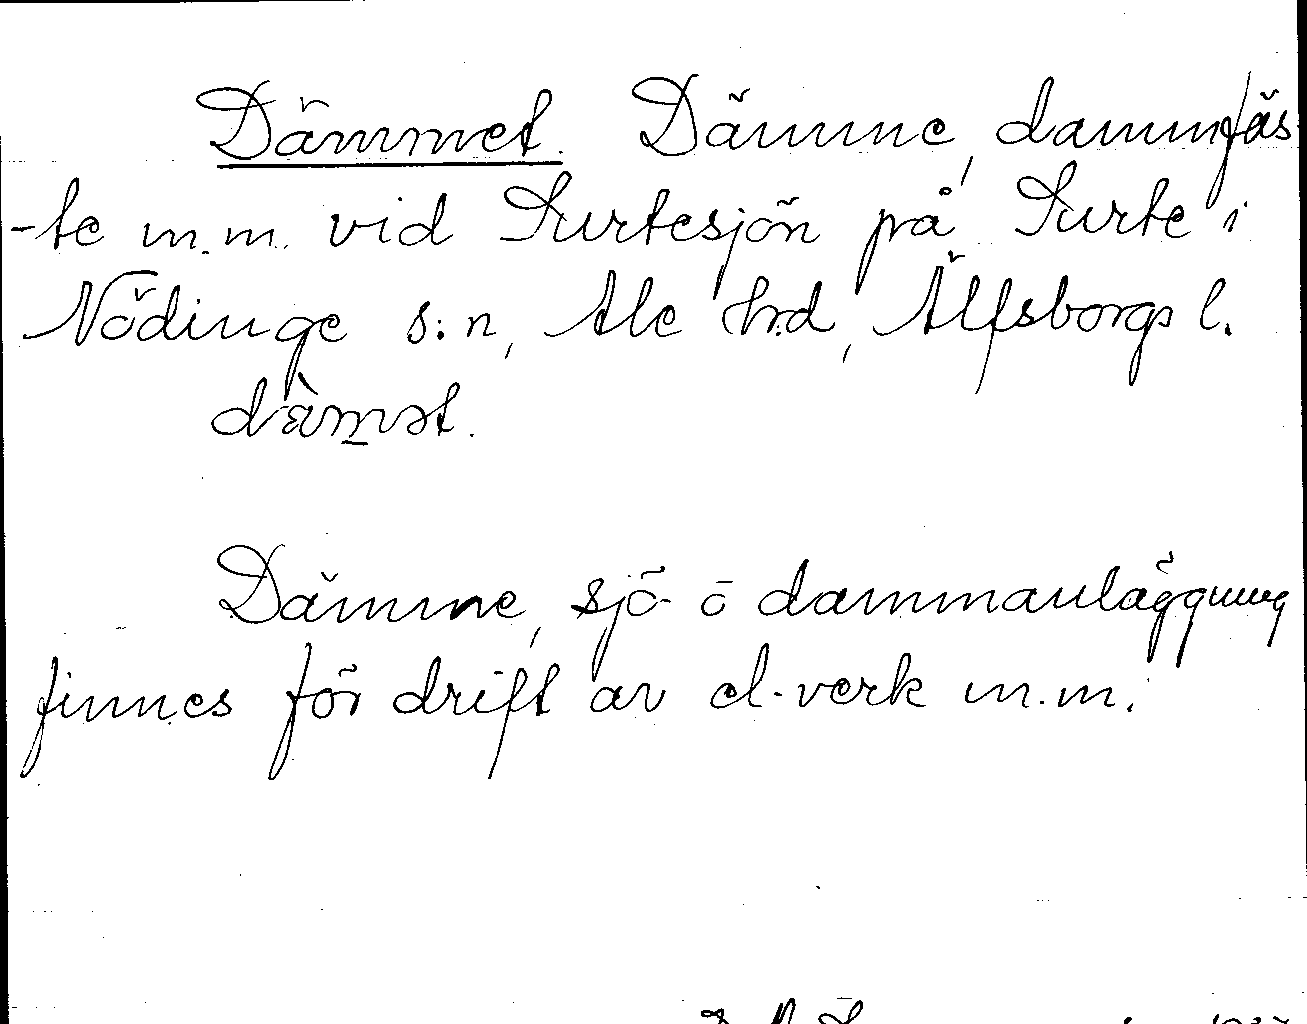 Dämmet. Dämme, dammfäs
-te m.m. vid Surtesjön på Surte i
Nödinge s:n, Ale hrd, Älfsborgs l.
Dämme, sjö- o dammanläggning
finnes för drift av el-verk m.m.